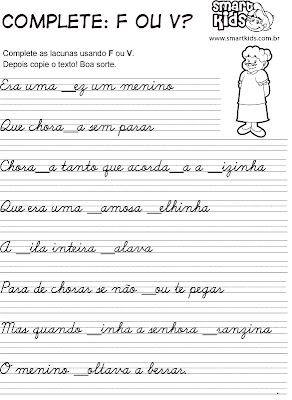 COMPLETE: F OU V?
Smart Kids
www.smartkids.com.br
Complete as lacunas usando F ou V.
Depois copie o texto! Boa sorte.
Era uma __ez um menino
Que chora__a sem parar
Chora__a tanto que acorda__a a __izinha
Que era uma __amosa __elhinha
A __ila inteira __alava
Para de chorar se não __ou te pegar
Mas quando __inha a senhora __ranzina
O menino __oltava a berrar.